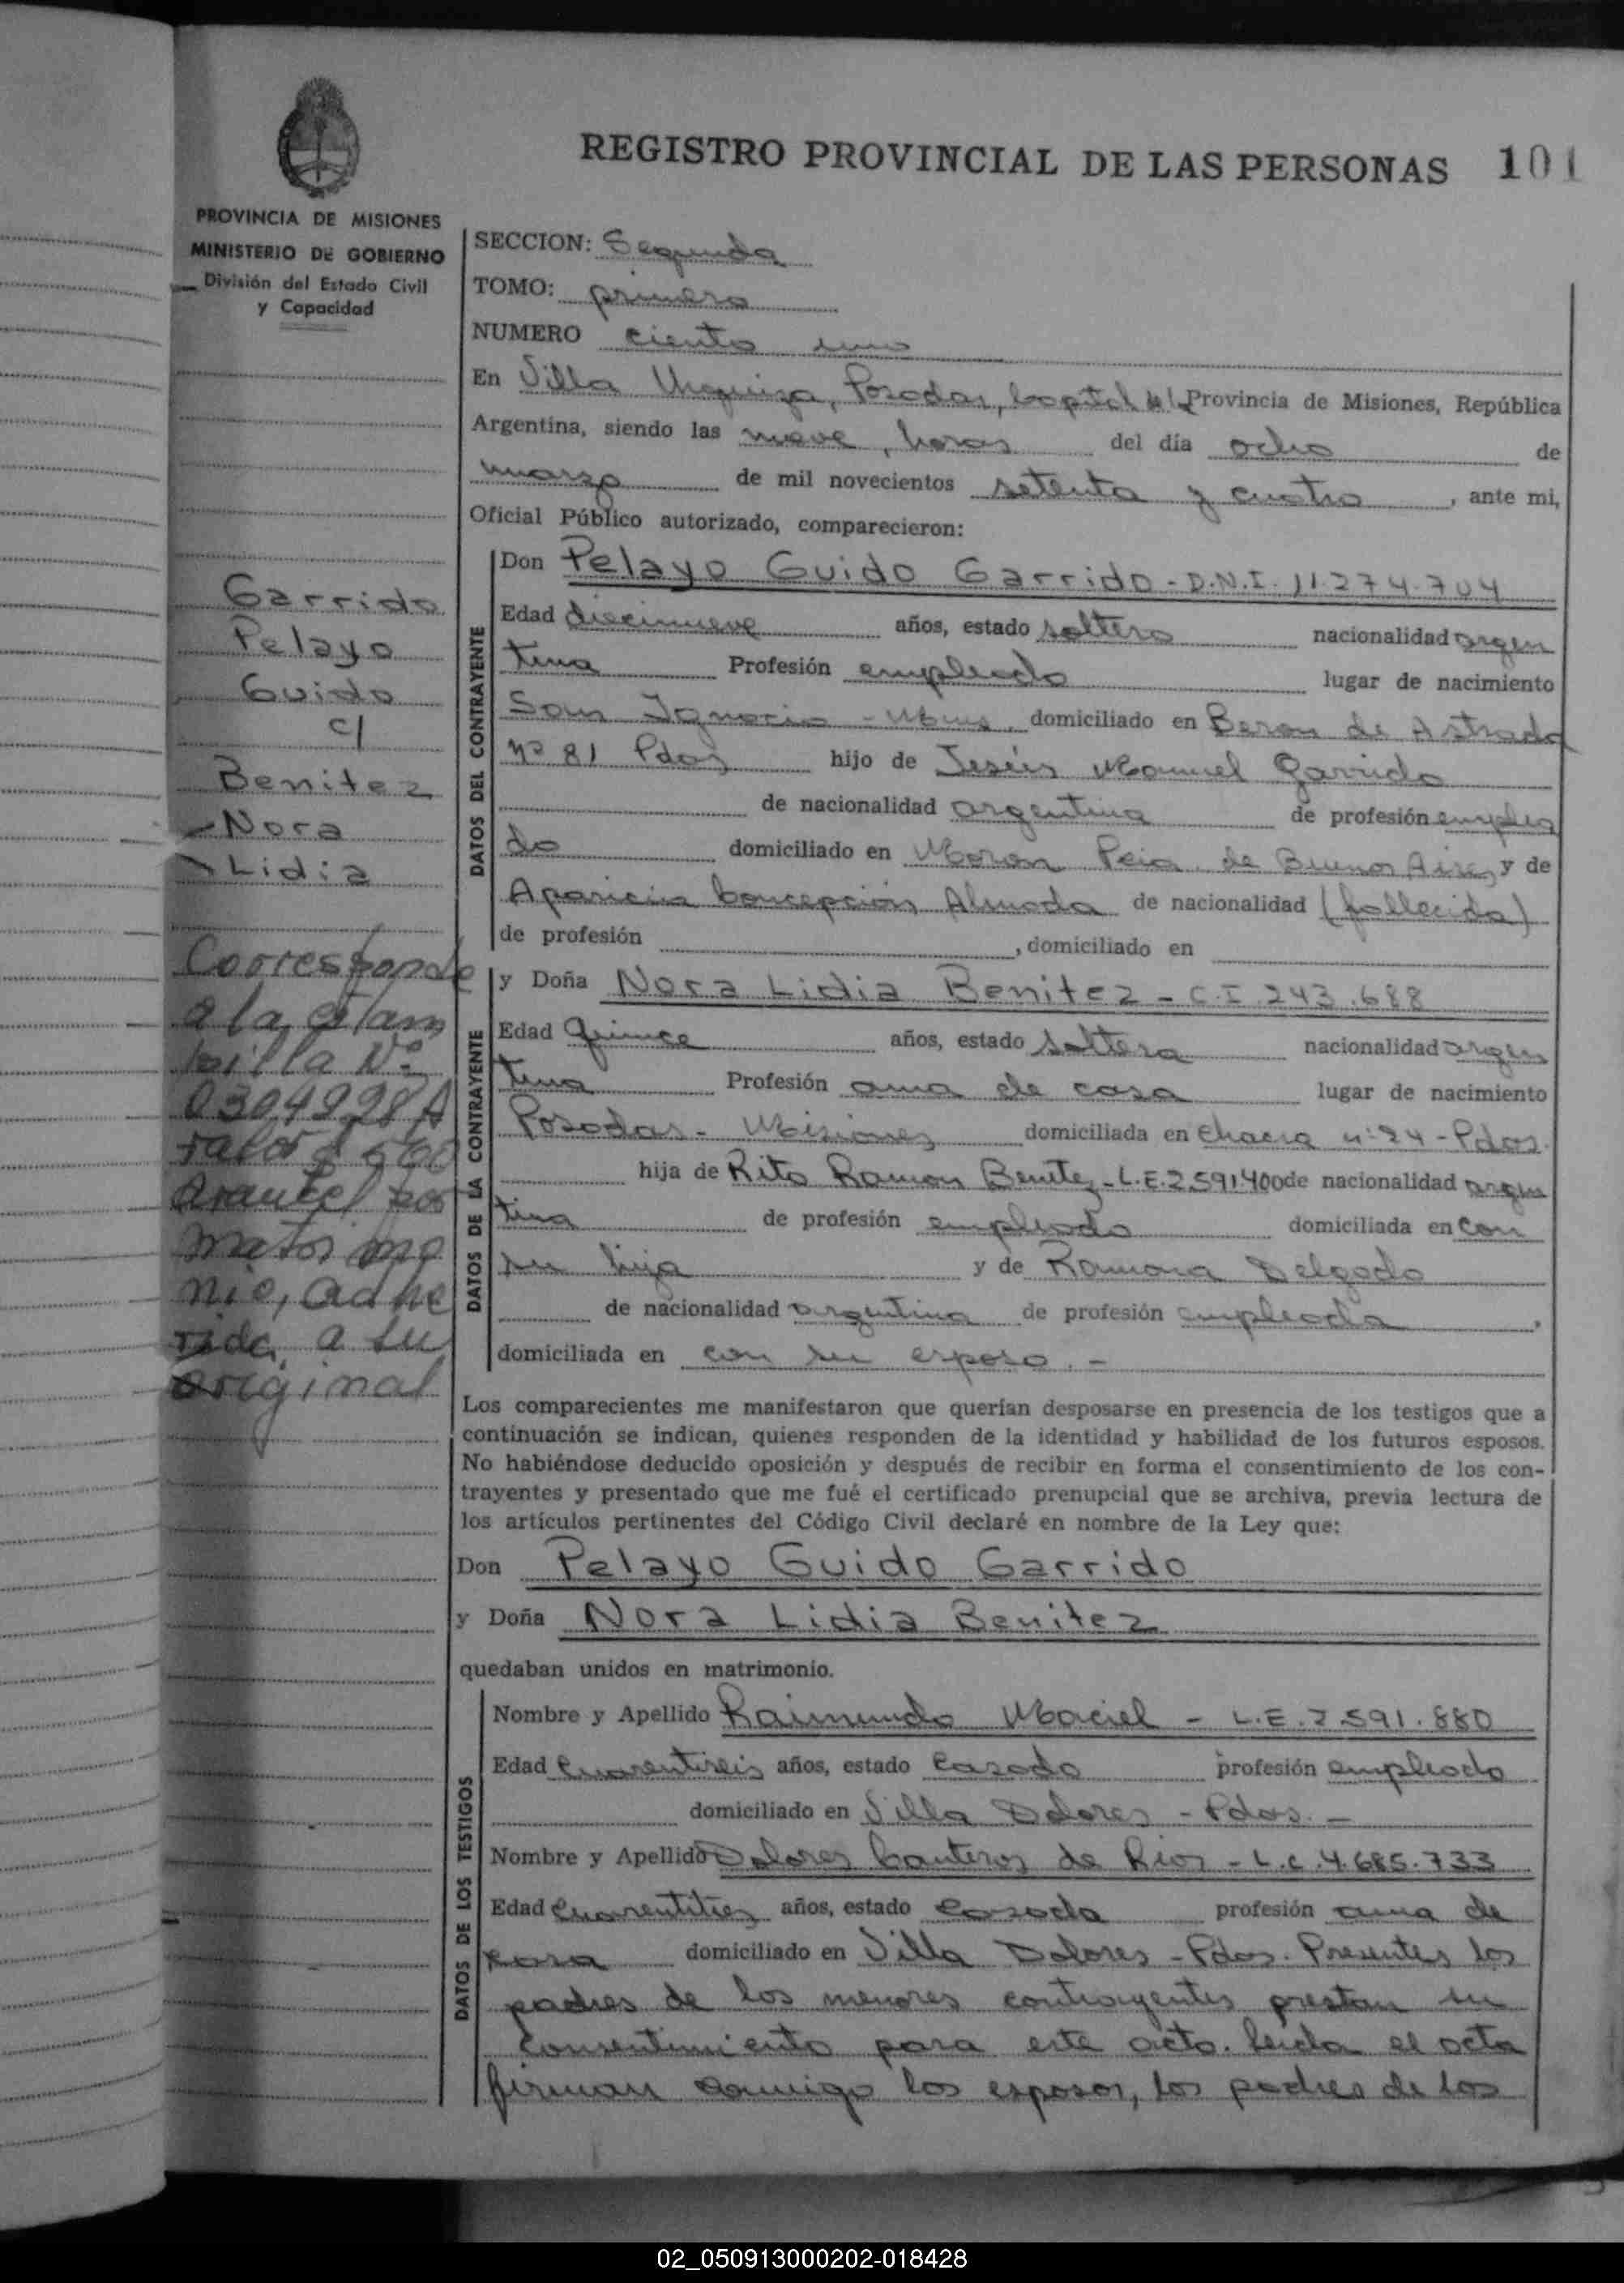 REGISTRO PROVINCIAL DE LAS PERSONAS 101
PROVINCIA DE MISIONES
MINISTERIO DE GOBIERNO
División del Estado Civil
y Capacidad
SECCION: Segunda
TOMO: primero
NUMERO ciento uno
En Villa Urquiza, Posadas, Capital de la Provincia de Misiones, República
Argentina, siendo las nueve, horas del día ocho de
marzo de mil novecientos setenta y cuatro, ante mi,
Oficial Público autorizado, comparecieron:
Garrido
Pelayo
Guido
c/
Benitez
Nora
Lidia
Corresponde
a la estam
pilla Nº
0304928A
valor $ 500
Arancel por
matrimo
nio, adhe
rida a su
original
DATOS DEL CONTRAYENTE
Don Pelayo Guido Garrido - D.N.I. 11.274.704
Edad diecinueve años, estado soltero nacionalidad argen
tina Profesión empleado lugar de nacimiento
San Ignacio - Mnes, domiciliado en Beron de Astrada
Nº 81 Pdas hijo de Jesús Manuel Garrido
de nacionalidad argentina de profesión emplea
do domiciliado en Moron Pcia. de Buenos Aires y de
Aparicia Concepción Almada de nacionalidad (fallecida)
de profesión , domiciliado en
DATOS DE LA CONTRAYENTE
y Doña Nora Lidia Benitez - C.I. 243.688
Edad quince años, estado soltera nacionalidad argen
tina Profesión ama de casa lugar de nacimiento
Posadas - Misiones domiciliada en Chacra nº 24 - Pdas.
hija de Rito Ramon Benitez - L.E. 2.591.400 de nacionalidad argen
tina de profesión empleado domiciliada en con
su hija y de Ramona Delgado
de nacionalidad argentina de profesión empleada,
domiciliada en con su esposo. -
Los comparecientes me manifestaron que querían desposarse en presencia de los testigos que a
continuación se indican, quienes responden de la identidad y habilidad de los futuros esposos.
No habiéndose deducido oposición y después de recibir en forma el consentimiento de los con-
trayentes y presentado que me fué el certificado prenupcial que se archiva, previa lectura de
los artículos pertinentes del Código Civil declaré en nombre de la Ley que:
Don Pelayo Guido Garrido
y Doña Nora Lidia Benitez
quedaban unidos en matrimonio.
DATOS DE LOS TESTIGOS
Nombre y Apellido Raimundo Maciel - L.E. 2.591.880
Edad cuarentiseis años, estado casado profesión empleado
domiciliado en Villa Dolores - Pdas. -
Nombre y Apellido Dolores Canteros de Rios - L.C. 4.685.733
Edad cuarentitres años, estado casada profesión ama de
casa domiciliado en Villa Dolores - Pdas. Presentes los
padres de los menores contrayentes prestan su
consentimiento para este acto. Leida el acta
firman conmigo los esposos, los padres de los
02_050913000202-018428